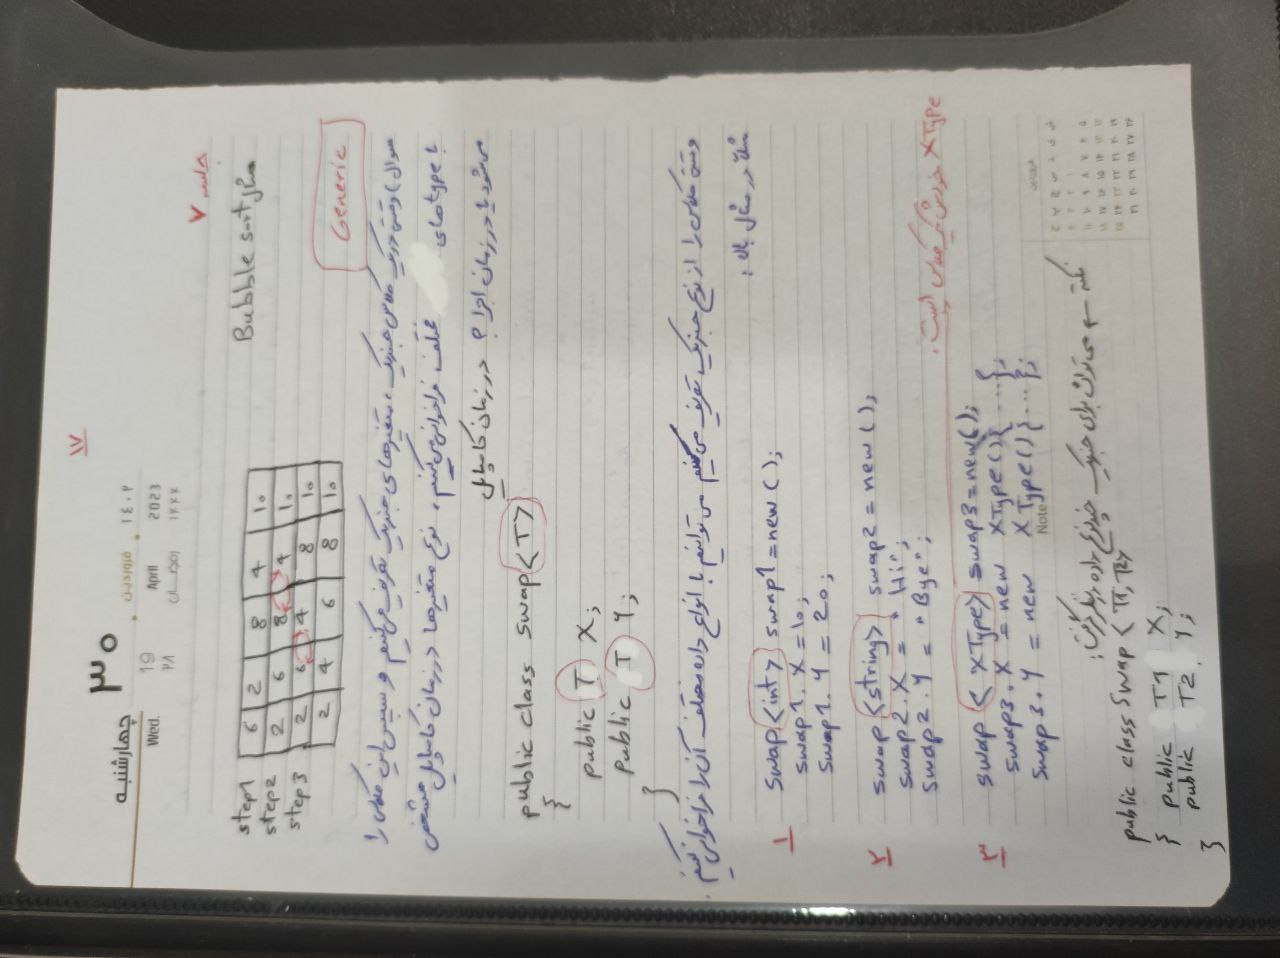 ۱۷
چهارشنبه ۳۰ فروردین ۱۴۰۲
Wed. 19 April 2023
۲۸ رمضان ۱۴۴۴
جلسه ۷
مثال Bubble sort
step1 6 2 8 4 10
step2 2 6 8 4 10
step3 2 6 4 8 10
2 4 6 8 10
Generic
سوال) وقتی در یک کلاس جنریک، متغیرهای جنریک تعریف می‌کنیم و سپس این کلاس را
با typeهای مختلف فراخوانی می‌کنیم، نوع متغیرها در زمان کامپایل مشخص
می‌شود یا در زمان اجرا؟ در زمان کامپایل
public class swap<T>
{
public T X;
public T Y;
}
وقتی کلاس را از نوع جنریک تعریف می‌کنیم می‌توانیم با انواع داده مختلف آن را فراخوانی کنیم.
مثلاً در مثال بالا:
۱ swap<int> swap1=new();
swap1.X=10;
swap1.Y = 20;
۲ swap<string> swap2=new();
swap2.X = "Hi";
swap2.Y = "Bye";
XType خودش یک کلاس است.
۳ swap<XType> swap3=new();
swap3.X = new XType(){...};
swap3.Y = new XType(){...};
Note
فروردین
ش ی د س چ پ ج
نکته → می‌توان برای جنریک چند نوع داده در نظر گرفت:
public class swap<T1,T2>
{ public T1 X;
public T2 Y;
}